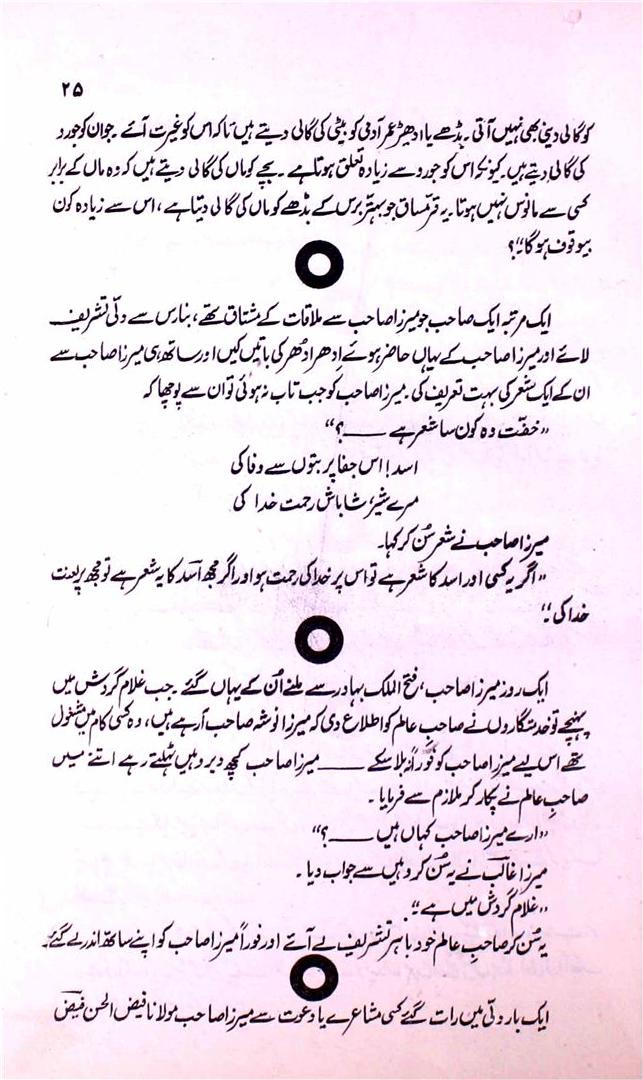 ۲۵
کو گالی دینی بھی نہیں آتی۔ بڈھے یا ادھیڑ عمر آدمی کو بیٹی کی گالی دیتے ہیں تاکہ اس کو غیرت آئے۔ جوان کو جورو
کی گالی دیتے ہیں۔ کیونکہ اس کو جورو سے زیادہ تعلق ہوتا ہے۔ بچے کو ماں کی گالی دیتے ہیں کہ وہ ماں کے برابر
کسی سے مانوس نہیں ہوتا۔ یہ قرمساق جو بہتر برس کے بڈھے کو ماں کی گالی دیتا ہے، اس سے زیادہ کون
بیوقوف ہوگا؟"
ایک مرتبہ ایک صاحب جو میرزا صاحب سے ملاقات کے مشتاق تھے، بنارس سے دلّی تشریف
لائے اور میرزا صاحب کے یہاں حاضر ہوئے اِدھر اُدھر کی باتیں کیں اور ساتھ ہی میرزا صاحب سے
ان کے ایک شعر کی بہت تعریف کی۔ میرزا صاحب کو جب تاب نہ ہوئی تو ان سے پوچھا کہ
"حضّت وہ کون سا شعر ہے ــــــ؟"
اسد! اس جفا پر بتوں سے وفا کی
مرے شیر، شاباش رحمت خدا کی
میرزا صاحب نے شعر سُن کر کہا۔
"اگر یہ کسی اور اسد کا شعر ہے تو اس پر خدا کی رحمت ہو اور اگر مجھ اسدؔ کا یہ شعر ہے تو مجھ پر لعنت
خدا کی۔"
ایک روز میرزا صاحب، فتح الملک بہادر سے ملنے اُن کے یہاں گئے۔ جب غلام گردش میں
پہنچے تو خدمتگاروں نے صاحب عالم کو اطلاع دی کہ میرزا نوشہ صاحب آرہے ہیں، وہ کسی کام میں مشغول
تھے اس لیے میرزا صاحب کو فوراً نہ بلا سکے ــــــ میرزا صاحب کچھ دیر وہیں ٹہلتے رہے اتنے میں
صاحبِ عالم نے پکار کر ملازم سے فرمایا۔
"ارے میرزا صاحب کہاں ہیں ــــــ؟"
میرزا غالبؔ نے یہ سُن کر وہیں سے جواب دیا۔
"غلام گردش میں ہے"۔
یہ سُن کر صاحبِ عالم خود باہر تشریف لے آئے اور فوراً میرزا صاحب کو اپنے ساتھ اندر لے گئے۔
ایک بار دلّی میں رات گئے کسی مشاعرے یا دعوت سے میرزا صاحب مولانا فیض الحسن فیضؔ